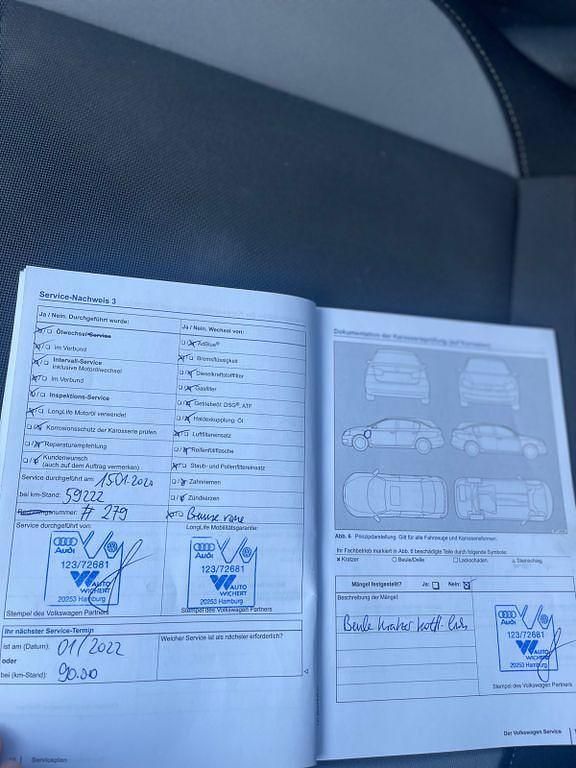 Service-Nachweis 3
Ja / Nein. Durchgeführt wurde:
Ölwechsel-Service
im Verbund
Intervall-Service
inklusive Motorölwechsel
im Verbund
Inspektions-Service
LongLife Motoröl verwendet
Korrosionsschutz der Karosserie prüfen
Reparaturempfehlung
Kundenwunsch
(auch auf dem Auftrag vermerken)
Service durchgeführt am: 15.01.2020
bei km-Stand: 59222
Rechnungsnummer: # 279
Service durchgeführt von:
Audi
123/72681
AUTO
WICHERT
20253 Hamburg
Stempel des Volkswagen Partners
Ja / Nein. Wechsel von:
AdBlue®
Bremsflüssigkeit
Dieselkraftstofffilter
Gasfilter
Getriebeöl: DSG®, ATF
Haldexkupplung: Öl
Luftfiltereinsatz
Reifenfüllflasche
Staub- und Pollenfiltereinsatz
Zahnriemen
Zündkerzen
LongLife Mobilitätsgarantie:
Audi
123/72681
AUTO
WICHERT
20253 Hamburg
Stempel des Volkswagen Partners
Ihr nächster Service-Termin
ist am (Datum): 01/2022
oder
bei (km-Stand): 90.00
Welcher Service ist als nächster erforderlich?
Serviceplan
Dokumentation der Karosserieprüfung auf
Abb. 6 Prinzipdarstellung. Gilt für alle Fahrzeuge und Karosserieformen.
Ihr Fachbetrieb markiert in Abb. 6 beschädigte Teile durch folgende Symbole:
× Kratzer ○ Beule/Delle □ Lackschaden △ Steinschlag
Mängel festgestellt? Ja: Nein:
Beschreibung der Mängel:
Beule Kratzer Kotfl. links
Audi
123/72681
AUTO
WICHERT
20253 Hamburg
Stempel des Volkswagen Partners
Der Volkswagen Service